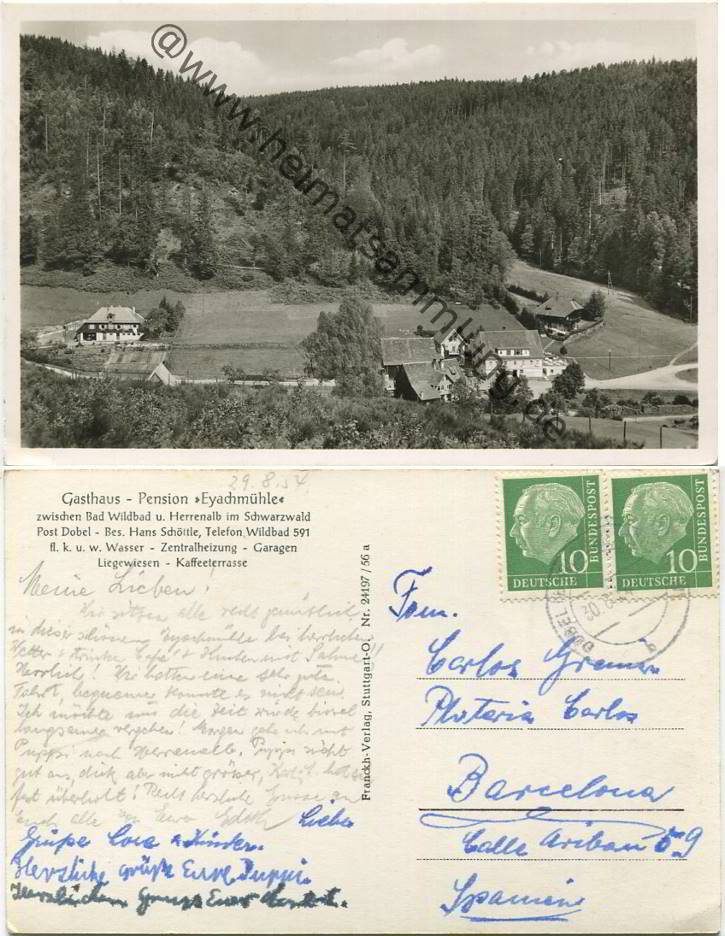 @www.heimatsammlung.de
29.8.54
Gasthaus - Pension »Eyachmühle«
zwischen Bad Wildbad u. Herrenalb im Schwarzwald
Post Dobel - Bes. Hans Schöttle, Telefon Wildbad 591
fl. k. u. w. Wasser - Zentralheizung - Garagen
Liegewiesen - Kaffeeterrasse
Meine Lieben!
Wir sitzen alle recht gemütlich
in dieser schönen Eyachmühle bei herrlichem
Wetter & trinken Café & Kuchen mit Sahne!!
Herrlich! Wir hatten eine sehr gute
Fahrt, bequemer konnte es nicht sein.
Ich möchte nur die Zeit würde bissel
langsamer vergehen! Morgen gehe ich mit
Puppi nach Herrenalb. Puppi sieht
gut aus, dick aber nicht grösser,
fast überholt! Recht herzliche Grüsse an
Euch alle von Eurer
Liebe
Grüße & Kinder.
Herzliche Grüße Eure Puppi.
Herzlichen Gruss Euer
Franckh-Verlag, Stuttgart-O. Nr. 24197/56 a
10
DEUTSCHE
BUNDESPOST
10
DEUTSCHE
BUNDESPOST
30.8.
b
Fam.
Carlos
Carlos
Barcelona
Calle Aribau 59
Spanien